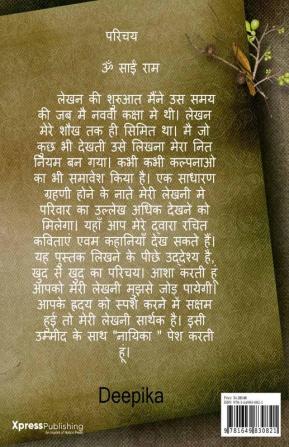 परिचय
ॐ साई राम
लेखन की शुरुआत मैंने उस समय
की जब मै नववी कक्षा मे थी। लेखन
मेरे शौख तक ही सिमित था। मै जो
कुछ भी देखती उसे लिखना मेरा नित
नियम बन गया। कभी कभी कल्पनाओ
का भी समावेश किया है। एक साधारण
ग्रहणी होने के नाते मेरी लेखनी मे
परिवार का उल्लेख अधिक देखने को
मिलेगा। यहाँ आप मेरे द्वारा रचित
कविताएं एवम कहानियाँ देख सकते हैं।
यह पुस्तक लिखने के पीछे उद्देश्य है,
खुद से खुद का परिचय। आशा करती हूं
आपको मेरी लेखनी मुझसे जोड़ पायेगी।
आपके ह्रदय को स्पर्श करने में सक्षम
हुई तो मेरी लेखनी सार्थक है। इसी
उम्मीद के साथ "नायिका " पेश करती
हूं।
Deepika
XpressPublishing
An imprint of Notion Press
9781649830821